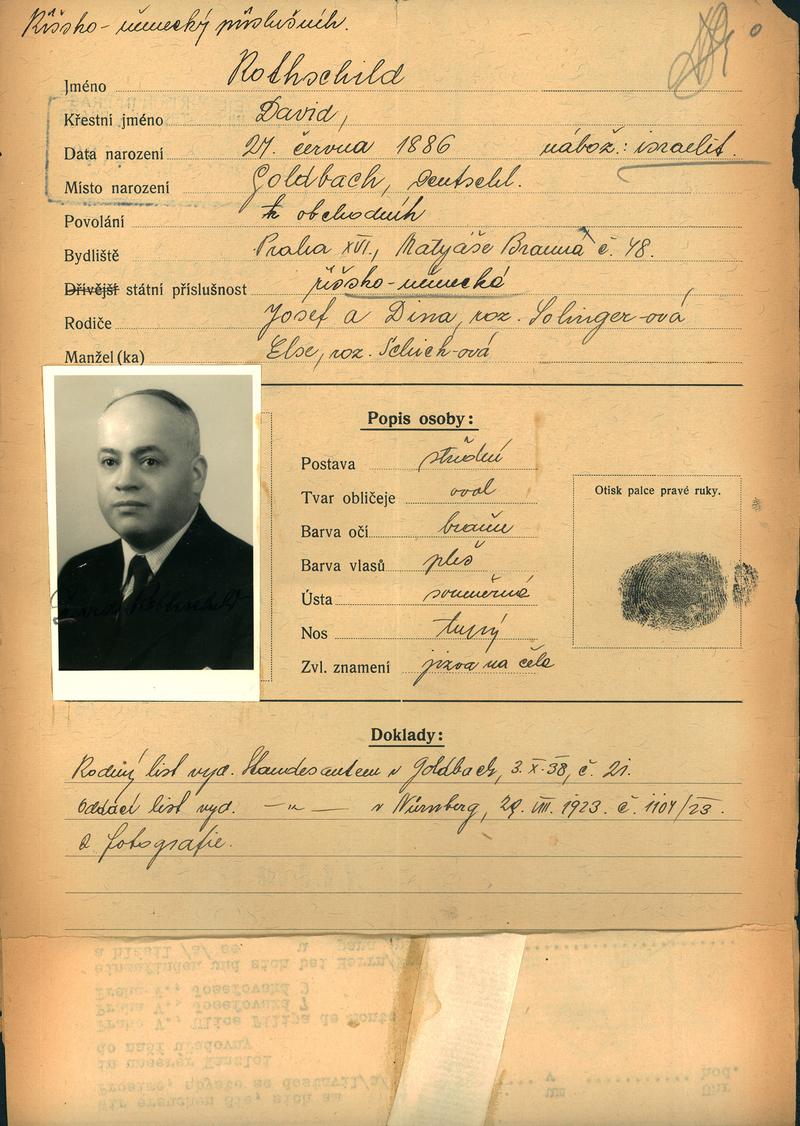 Říšsko-německý příslušník.
Jméno Rothschild
Křestní jméno David,
Data narození 27. června 1886 nábož.: israelit.
Místo narození Goldbach, Deutschl.
Povolání obchodník
Bydliště Praha XVI., Matyáše Brauna č. 48.
Dřívější státní příslušnost říšsko-německá
Rodiče Josef a Dina, roz. Solinger-ová
Manžel(ka) Else, roz. Schich-ová
Popis osoby:
Postava střední
Tvar obličeje oval
Otisk palce pravé ruky.
Barva očí braun
Barva vlasů pleš
Ústa souměrná
David Rothschild
Nos tupý
Zvl. znamení jizva na čele
Doklady:
Rodný list vyd. Standesamtem v Goldbach, 3.X.38, č. 21.
Oddací list vyd. —„— v Nürnberg, 29. VIII. 1923. č. 1104/23.
2 fotografie.